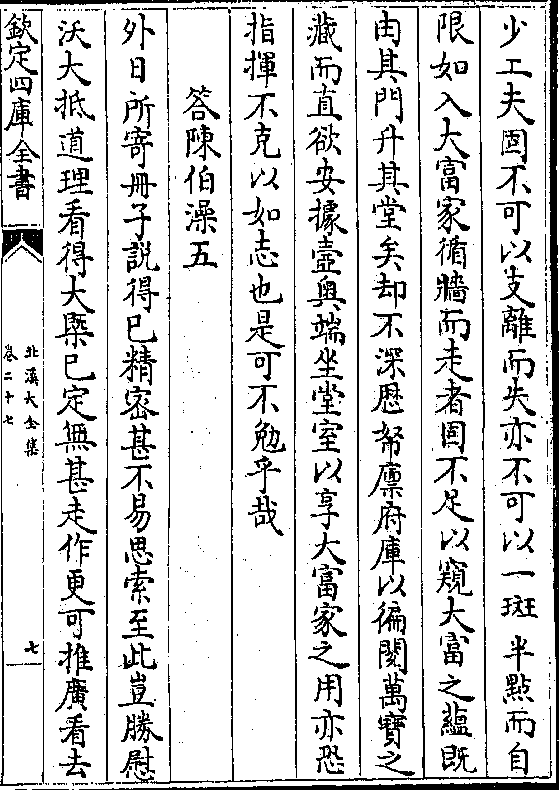 少工夫固不可以支離而失亦不可以一斑半㸃而自
限如入大富家循牆而走者固不足以窺大富之蘊既
由其門升其堂矣却不深歴帑廪府庫以徧閲萬寳之
藏而直欲安據壼奥端坐堂室以享大富家之用亦恐
指揮不克以如志也是可不勉乎哉
答陳伯澡五
外日所寄冊子說得已精宻甚不易思索至此豈勝慰
沃大抵道理看得大槩已定無甚走作更可推廣看去
欽定四庫全書
北溪大全集
卷二十七
七